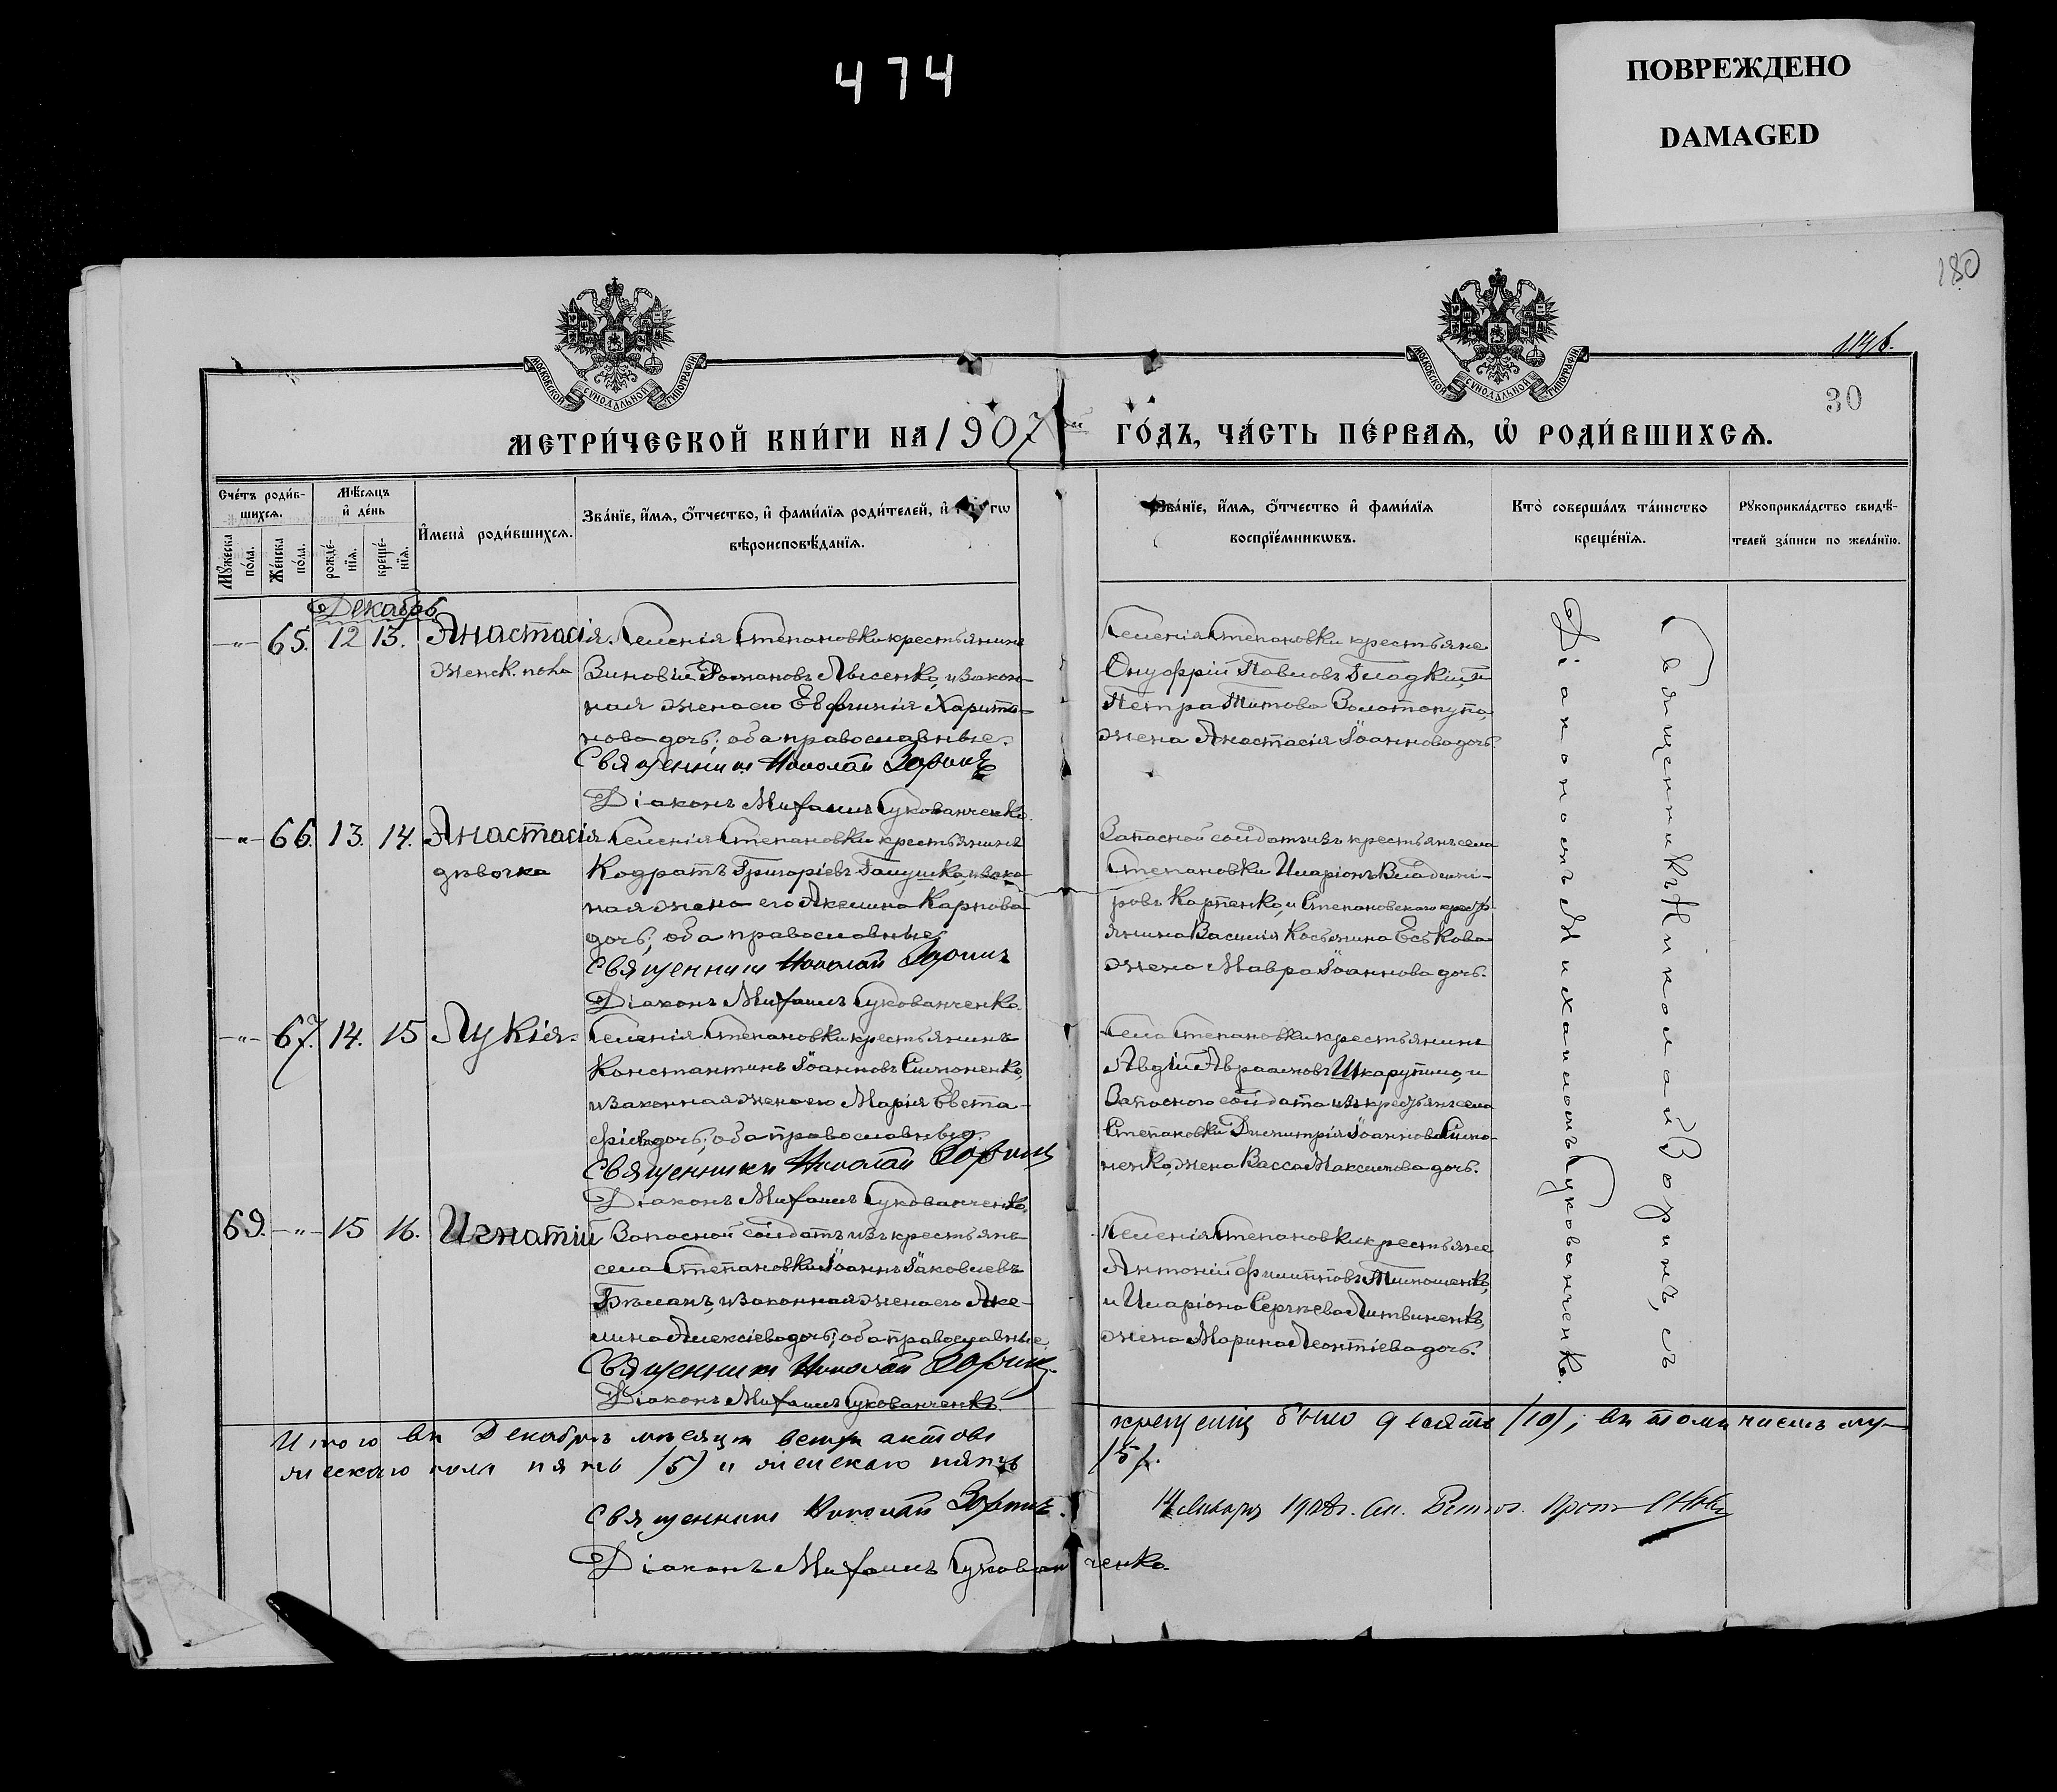 474
ПОВРЕЖДЕНО
DAMAGED
180
30
МОСКОВСКОЙ СѴНОДАЛЬНОЙ ТИПОГРАФІИ
МОСКОВСКОЙ СѴНОДАЛЬНОЙ ТИПОГРАФІИ
МЕТРИ́ЧЕСКОЙ КНИ́ГИ НА 1907 ГО́ДЪ, ЧА́СТЬ ПЕ́РВАѦ, Ѡ҆ РОДИ́ВШИХСѦ.
Сче́тъ роди́в-
шихсѧ.
Мꙋ́жеска по́ла.
Же́нска по́ла.
Мѣ́сѧцъ
и҆ де́нь
рожде́-
нїѧ.
креще́-
нїѧ.
И҆мена̀ роди́вшихсѧ.
Зва́нїе, и҆́мѧ, ѻ҆́тчество, и҆ фами́лїѧ роди́телей, и҆
вѣроисповѣ́данїѧ.
Зва́нїе, и҆́мѧ, ѻ҆́тчество и҆ фами́лїѧ
воспрїе́мникѡвъ.
Кто̀ соверша́лъ та́инство
креще́нїѧ.
Рꙋкоприкла́дство свидѣ́-
телей за́писи по жела́нїю.
Декабрь
-"- 65. 12 13. Анастасія.
женск. пола
Селенія Степановки крестьянинъ
Зиновій Романовъ Лысенко, и закон-
ная жена его Евфимія Харито-
нова дочь; оба православные.
Священникъ Николай Зоринъ
Діаконъ Михаилъ Сукованченко.
Селенія Степановки крестьяне
Онуфрій Павловъ Гладкій, и
Петра Титова Золотопупа,
жена Анастасія Іоаннова дочь.
-"- 66. 13. 14. Анастасія
дѣвочка
Селенія Степановки крестьянинъ
Кодратъ Григоріевъ Галушко, и зако-
ная жена его Акилина Карпова
дочь; оба православные
Священникъ Николай Зоринъ
Діаконъ Михаилъ Сукованченко.
Запасной солдатъ изъ крестьянъ села
Степановки Иларіонъ Владимі-
ровъ Карпенко, и Степановскаго кресть-
янина Василія Косьмина Еськова
жена Мавра Іоаннова дочь.
-"- 67. 14. 15 Лукія.
Селенія Степановки крестьянинъ
Константинъ Іоанновъ Симоненко,
и законная жена его Марія Евста-
фіева дочь; оба православные.
Священникъ Николай Зоринъ
Діаконъ Михаилъ Сукованченко.
Села Степановки крестьянинъ
Авдій Авраамовъ Шкарупило, и
Запасного солдата изъ крестьянъ села
Степановки Димитрія Іоаннова Симо-
ненко, жена Васса Максимова дочь.
69. -"- 15 16. Игнатій
Запасной солдатъ изъ крестьянъ
села Степановки Іоаннъ Іаковлевъ
и законная жена его Аки-
лина Алексіева дочь; оба православные
Священникъ Николай Зоринъ.
Діаконъ Михаилъ Сукованченко.
Селенія Степановки крестьяне
Антоній Филипповъ Тимошенко,
и Иларіона Сергѣева Литвиненко,
жена Марина Леонтіева дочь.
Священникъ Николай Зоринъ, съ
Діакономъ Михаиломъ Сукованченко.
Итого въ Декабрѣ мѣсяцѣ всѣхъ актовъ крещенія было десять /10/; въ томъ числѣ му-
жескаго пола пять /5/ и женскаго пять /5/.
Священникъ Николай Зоринъ.
Діаконъ Михаилъ Сукованченко.
Января 1908 г.